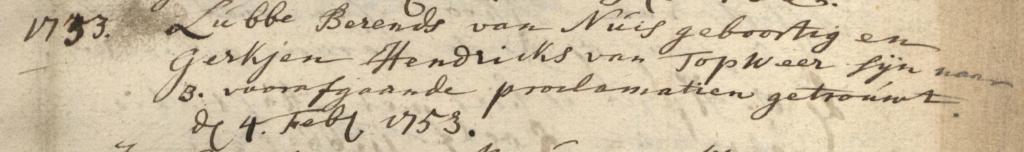 1753. Lubbe Berends van Núis geboortig en
Gerkjen Hendricks van Topweer sijn naar
3. voorafgaande proclamatien getroúwt.
d 4. Feb 1753.